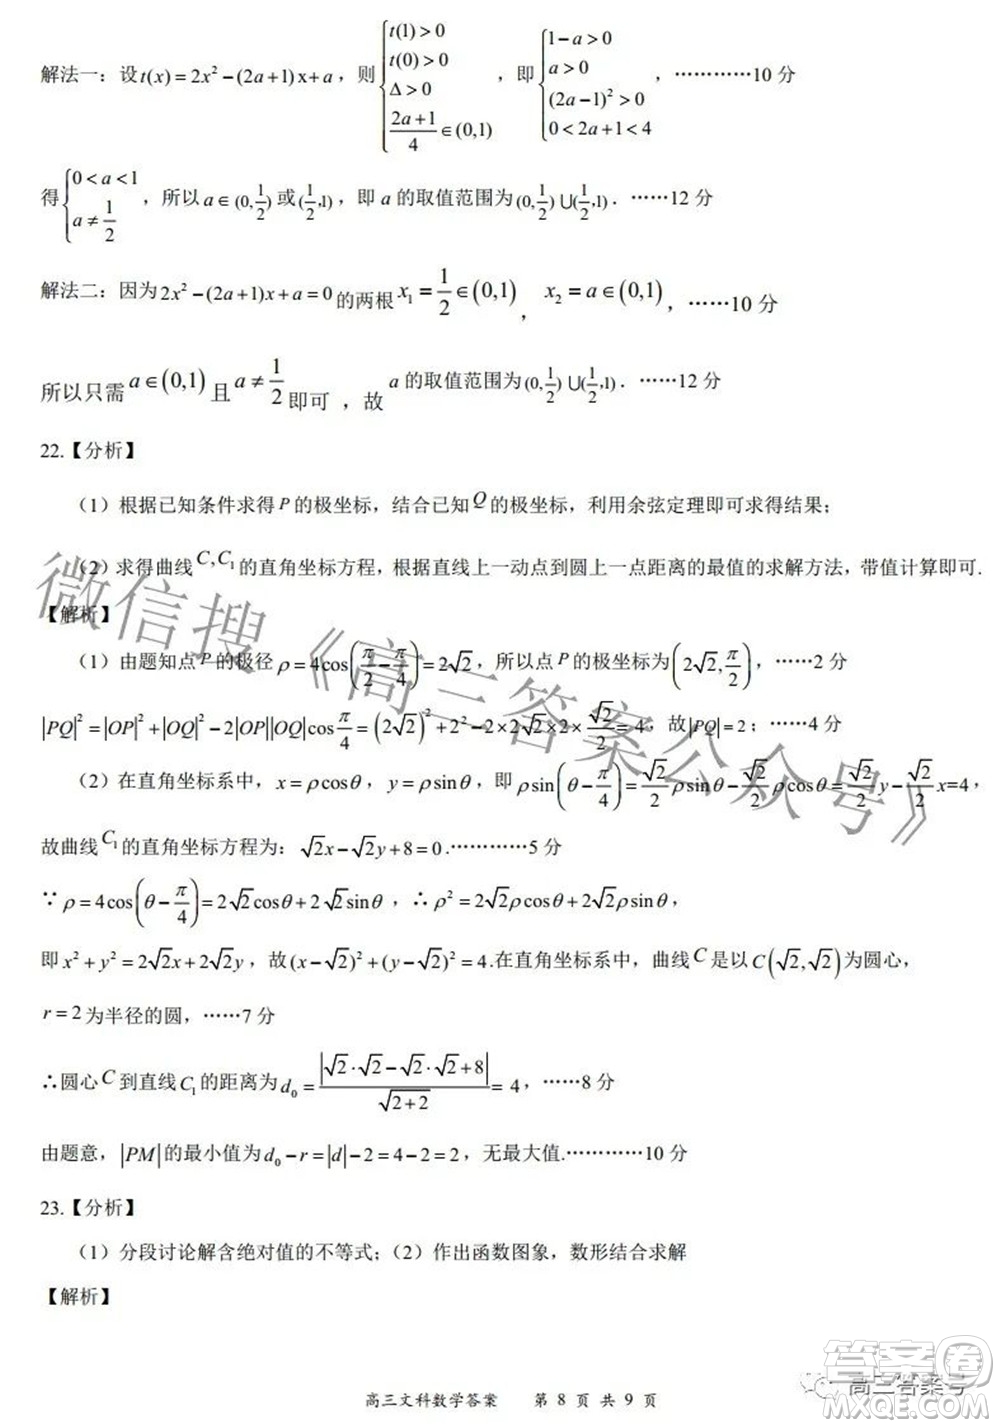 解法一：设 t(x)=2x²−(2a+1)x+a，则 { t(1)>0  t(0)>0  Δ>0  (2a+1)/4∈(0,1) ，即 { 1−a>0  a>0  (2a−1)²>0  0<2a+1<4 ，…………10 分
得 { 0<a<1  a≠1/2 ，所以 a∈(0,1/2) 或 (1/2,1)，即 a 的取值范围为 (0,1/2)∪(1/2,1)．……12 分
解法二：因为 2x²−(2a+1)x+a=0 的两根 x₁=1/2∈(0,1)，x₂=a∈(0,1)，……10 分
所以只需 a∈(0,1) 且 a≠1/2 即可 ，故 a 的取值范围为 (0,1/2)∪(1/2,1)．……12 分
22.【分析】
（1）根据已知条件求得 P 的极坐标，结合已知 Q 的极坐标，利用余弦定理即可求得结果；
（2）求得曲线 C,C₁ 的直角坐标方程，根据直线上一动点到圆上一点距离的最值的求解方法，带值计算即可.
【解析】
（1）由题知点 P 的极径 ρ=4cos(π/2−π/4)=2√2，所以点 P 的极坐标为 (2√2,π/2)，……2 分
|PQ|²=|OP|²+|OQ|²−2|OP||OQ|cos π/4=(2√2)²+2²−2×2√2×2×√2/2=4，故|PQ|=2；……4 分
（2）在直角坐标系中，x=ρcosθ，y=ρsinθ，即 ρsin(θ−π/4)=√2/2 ρsinθ−√2/2 ρcosθ=√2/2 y−√2/2 x=4，
故曲线 C₁ 的直角坐标方程为：√2x−√2y+8=0.…………5 分
∵ρ=4cos(θ−π/4)=2√2cosθ+2√2sinθ，∴ρ²=2√2ρcosθ+2√2ρsinθ，
即 x²+y²=2√2x+2√2y，故 (x−√2)²+(y−√2)²=4.在直角坐标系中，曲线 C 是以 C(√2,√2) 为圆心，
r=2 为半径的圆，……7 分
∴圆心 C 到直线 C₁ 的距离为 d₀=|√2·√2−√2·√2+8|/√(2+2)=4，……8 分
由题意，|PM| 的最小值为 d₀−r=|d|−2=4−2=2，无最大值.…………10 分
23.【分析】
（1）分段讨论解含绝对值的不等式；（2）作出函数图象，数形结合求解
【解析】
高三文科数学答案 第 8 页 共 9 页
微信搜《高三答案公众号》
高三答案号
答案圈
MXQE.COM